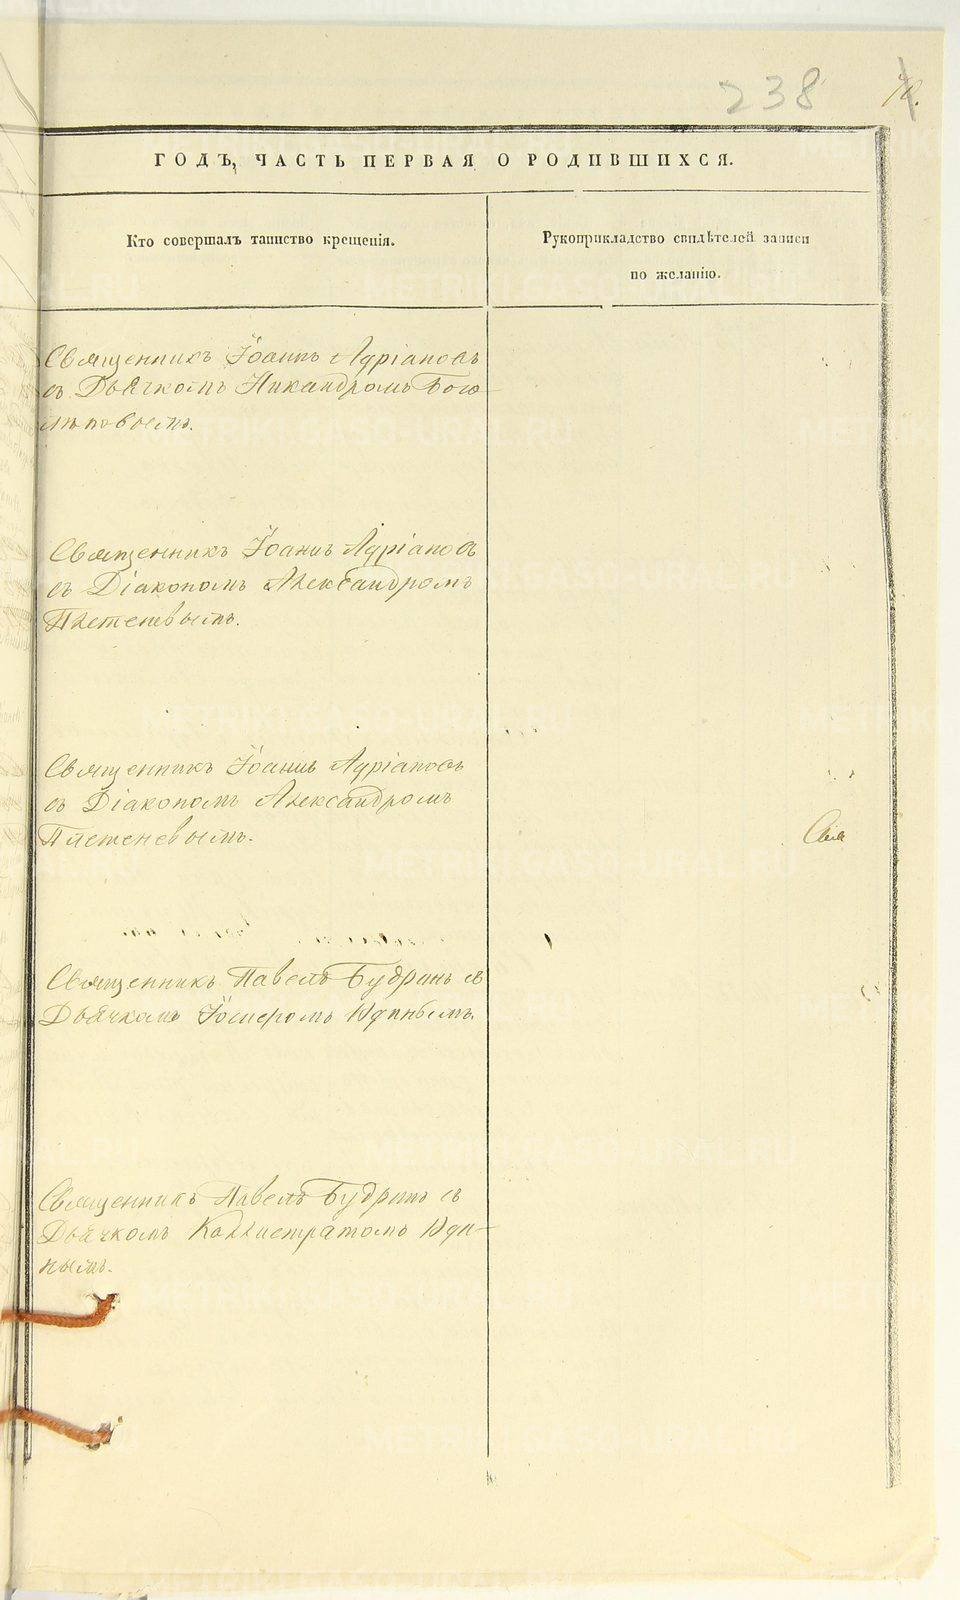 238
ГОДЪ, ЧАСТЬ ПЕРВАЯ О РОДИВШИХСЯ.
Кто совершалъ таинство крещенія.
Рукоприкладство свидѣтелей записи
по желанію.
Священникъ Іоаннъ Адріановъ
съ Дьячкомъ Никандромъ Бого-
лѣповымъ.
Священникъ Іоаннъ Адріановъ
съ Діакономъ Александромъ
Плетеневымъ.
Священникъ Іоаннъ Адріановъ
съ Діакономъ Александромъ
Плетеневымъ.
Священникъ Павелъ Будринъ съ
Дьячкомъ Іосифомъ Удинымъ.
Священникъ Павелъ Будринъ съ
Дьячкомъ Каллистратомъ Уди-
нымъ.
METRIKI.GASO-URAL.RU